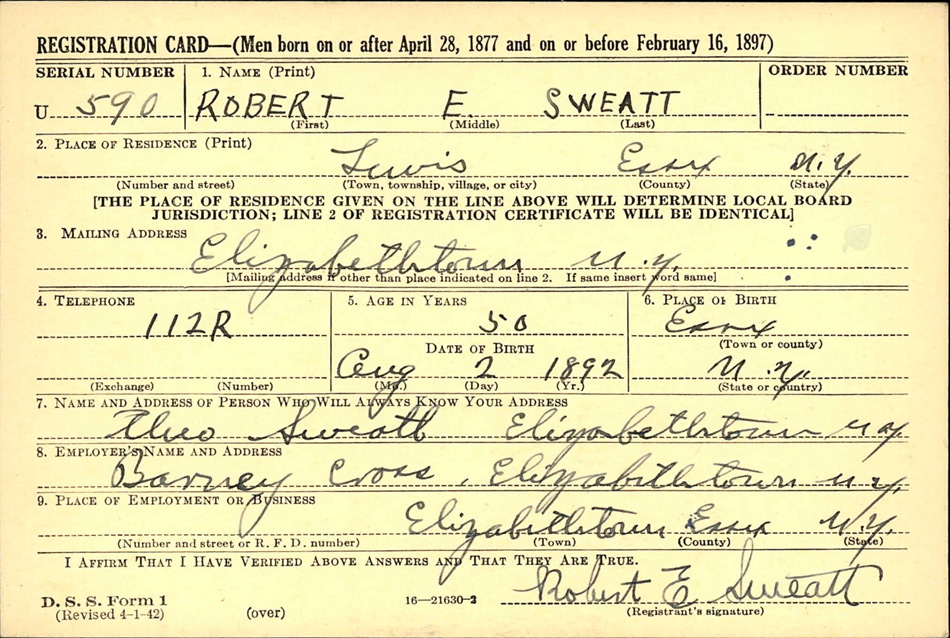 REGISTRATION CARD—(Men born on or after April 28, 1877 and on or before February 16, 1897)
SERIAL NUMBER 1. NAME (Print) ORDER NUMBER
U 590 ROBERT E. SWEATT
(First) (Middle) (Last)
2. PLACE OF RESIDENCE (Print)
Lewis Essex N.Y.
(Number and street) (Town, township, village, or city) (County) (State)
[THE PLACE OF RESIDENCE GIVEN ON THE LINE ABOVE WILL DETERMINE LOCAL BOARD
JURISDICTION; LINE 2 OF REGISTRATION CERTIFICATE WILL BE IDENTICAL]
3. MAILING ADDRESS
Elizabethtown N.Y.
[Mailing address if other than place indicated on line 2. If same insert word same]
4. TELEPHONE 5. AGE IN YEARS 6. PLACE OF BIRTH
112R 50 Essex
(Town or county)
DATE OF BIRTH
Aug 2 1892 N.Y.
(Exchange) (Number) (Mo.) (Day) (Yr.) (State or country)
7. NAME AND ADDRESS OF PERSON WHO WILL ALWAYS KNOW YOUR ADDRESS
Theo Sweatt Elizabethtown N.Y.
8. EMPLOYER'S NAME AND ADDRESS
Barney Cross, Elizabethtown N.Y.
9. PLACE OF EMPLOYMENT OR BUSINESS
Elizabethtown Essex N.Y.
(Number and street or R. F. D. number) (Town) (County) (State)
I AFFIRM THAT I HAVE VERIFIED ABOVE ANSWERS AND THAT THEY ARE TRUE.
Robert E Sweatt
D. S. S. Form 1 16—21630-2
(Revised 4-1-42) (over) (Registrant's signature)